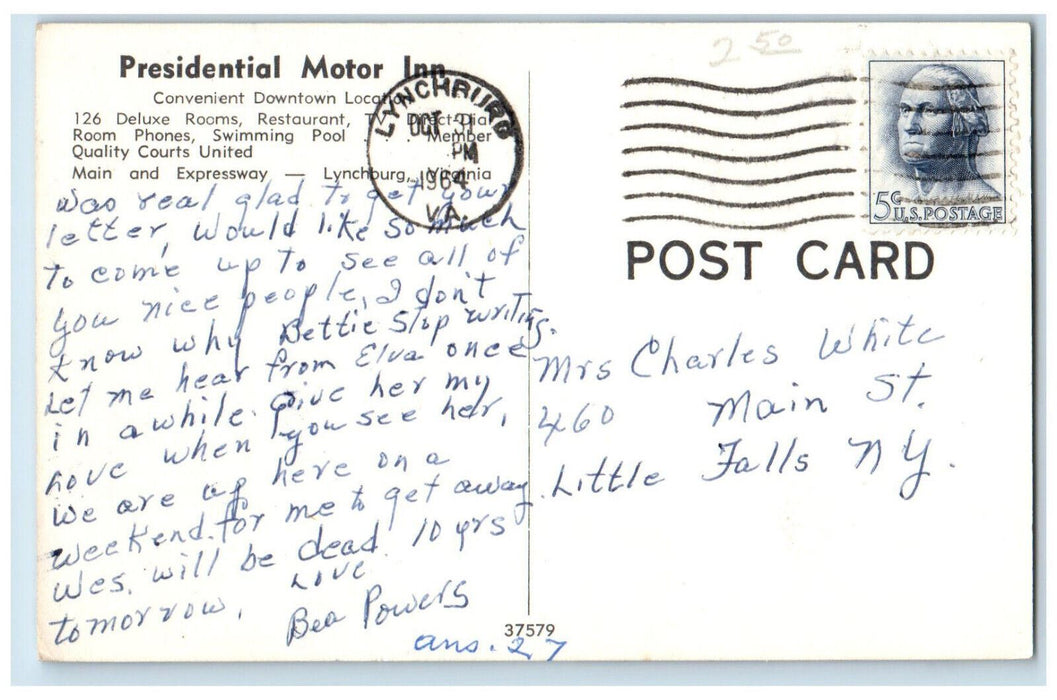 Presidential Motor Inn
Convenient Downtown Location
126 Deluxe Rooms, Restaurant, Direct-Dial
Room Phones, Swimming Pool . . . Member
Quality Courts United
Main and Expressway — Lynchburg, Virginia
LYNCHBURG
OCT
PM
1964
VA.
2 50
5¢
U.S. POSTAGE
POST CARD
was real glad to get your
letter, would like so much
to come up to see all of
you nice people, I don't
know why Bettie stop writing.
Let me hear from Elva once
in a while. Give her my
Love when you see her,
We are up here on a
weekend for me to get away
Wes. will be dead 10 yrs
tomorrow,
Love
Bea Powers
ans. 27
Mrs Charles White
460 Main St.
Little Falls NY.
37579